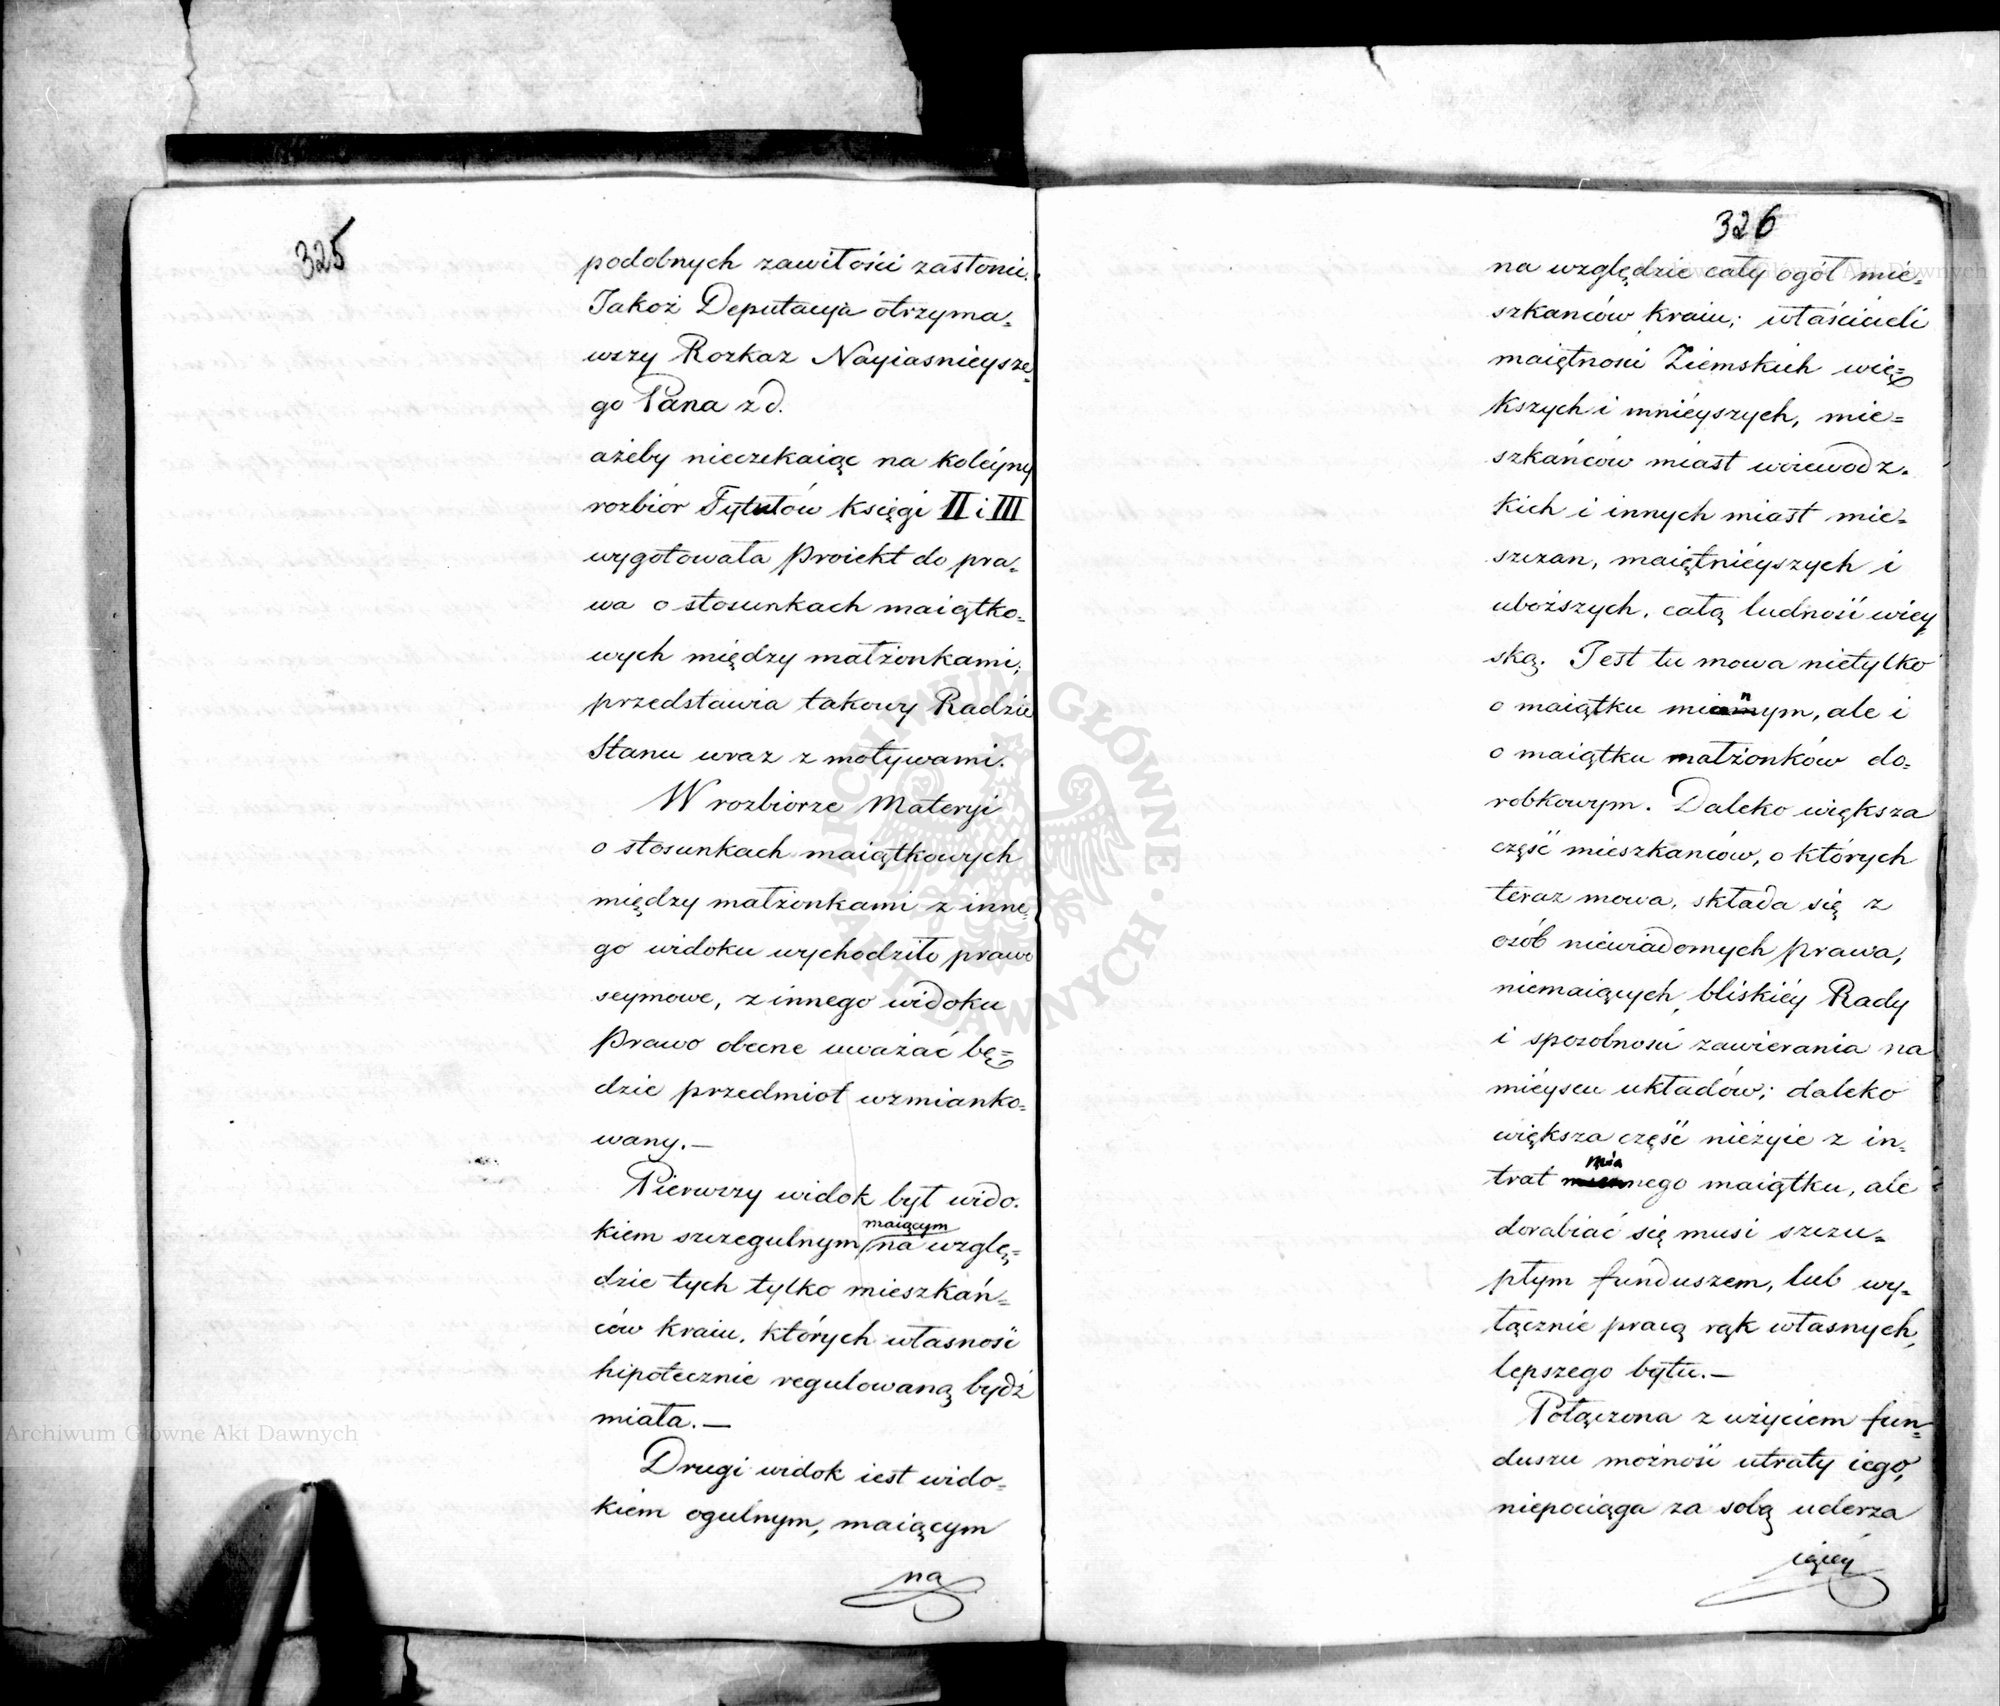 325
podobnych zawiłości zasłonić.
Jakoż Deputacya otrzyma=
wszy Rozkaz Nayiasnieysze=
go Pana z d.
ażeby nieczekaiąc na koléyny
rozbiór Tytułów księgi II i III
wygotowała Proiekt do pra=
wa o stosunkach maiątko=
wych między małżonkami,
przedstawia takowy Radzie
Stanu wraz z motywami.
W rozbiorze Materyi
o stosunkach maiątkowych
między małżonkami z inne=
go widoku wychodziło prawo
seymowe, z innego widoku
Prawo obecne uważać bę=
dzie przedmiot wzmianko=
wany.—
Pierwszy widok był wido=
kiem szczegulnym, maiącym na wzglę=
dzie tych tylko mieszkań=
ców kraiu, których własność
hipotecznie regulowaną bydź
miała.—
Drugi widok iest wido=
kiem ogulnym, maiącym
na
326
na względzie cały ogół mie=
szkanców kraiu; właścicieli
maiętnosci Ziemskich wię=
kszych i mniéyszych, mie=
szkańców miast woiewodz=
kich i innych miast mie=
szczan, maiętniéyszych i
uboższych, całą ludność wiey
ską. Jest tu mowa nietylko
o maiątku miennym, ale i
o maiątku małżonków do=
robkowym. Daleko większa
część mieszkanców, o których
teraz mowa, składa się z
osób niewiadomych Prawa,
niemaiących bliskiéy Rady
i sposobnosci zawierania na
miéyscu układów; daleko
większa część nieżyie z in=
trat mianego maiątku, ale
dorabiać się musi szczu=
płym funduszem, lub wy=
łącznie pracą rąk własnych,
lepszego bytu.—
Połączona z użyciem fun=
duszu możność utraty iego,
niepociąga za sobą uderza
iącéy
Archiwum Główne Akt Dawnych
ARCHIWUM GŁÓWNE AKT DAWNYCH
Archiwum Główne Akt Dawnych